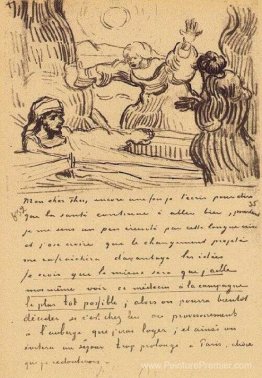 Mon cher Theo, encore une fois je t'écris pour dire
que la santé continue à aller bien, pourtant
je me sens un peu éreinté par cette longue crise
et j'ose croire que le changement projeté
me rafraichira davantage les idées
Je crois que le mieux sera que j'aille
moi même voir ce médecin à la campagne
le plus tôt possible; alors on pourra bientot
décider si c'est chez lui ou provisoirement
à l'auberge que j'irai loger; et ainsi on
evitera un séjour trop prolongé à Paris, chose
que je redouterais.
© www.PeinturePremier.com